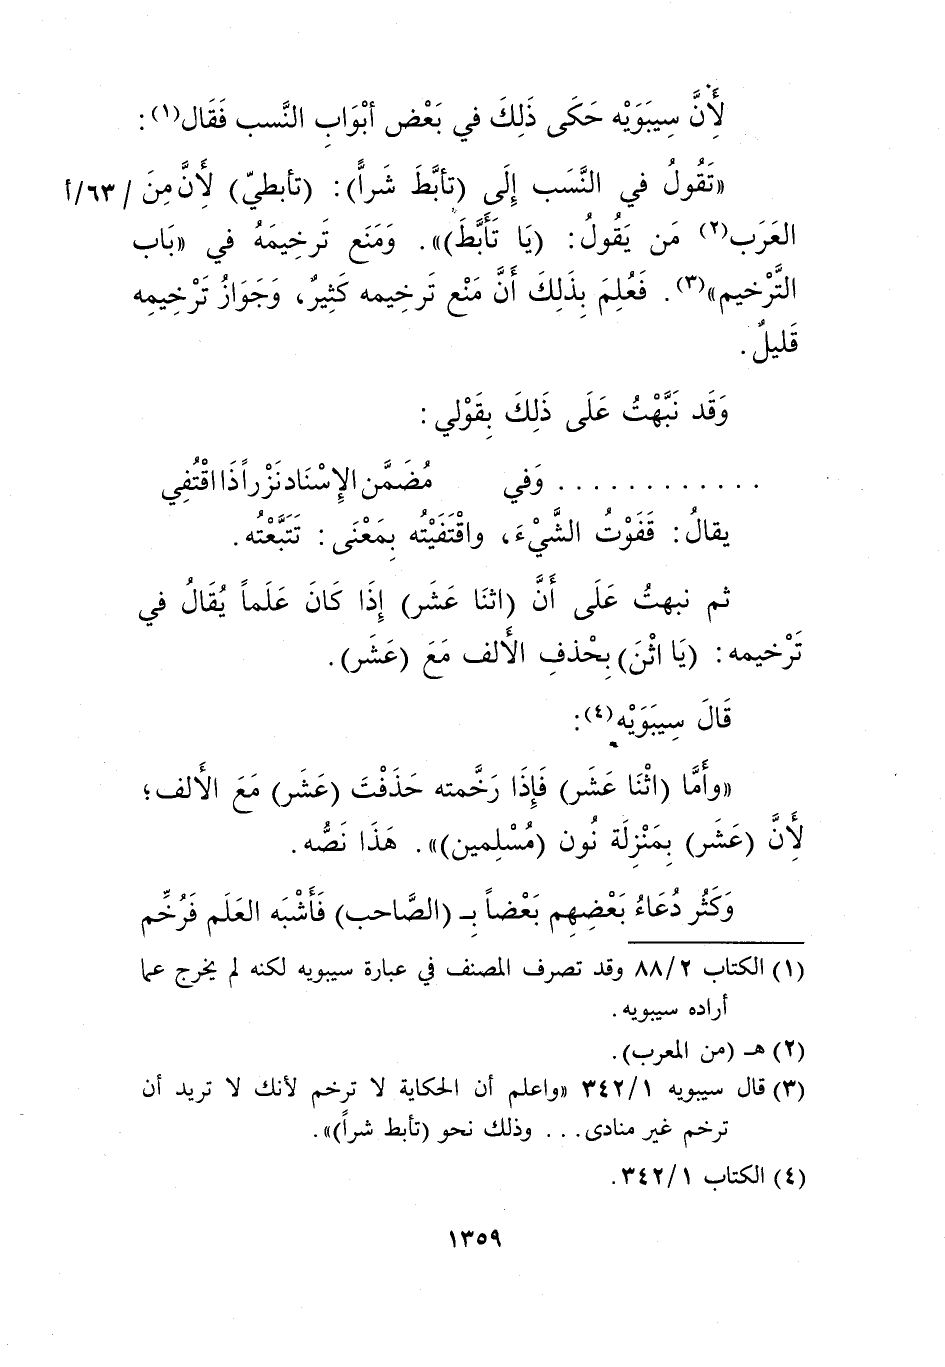 لِأَنَّ سِيبَوَيْه حَكَى ذَلِكَ في بَعْض أبْوَابِ النَّسب فَقَال(١):
«تَقُولُ في النَّسَب إلَى (تأبَّطَ شَراً): (تأبطيّ) لأَنَّ مِنَ /٦٣/أ
العَرَب(٢) مَن يَقُولُ: (يَا تَأَبَّطَ)». وَمَنَع تَرخِيمَهُ في «بَاب
التَّرْخيم»(٣). فَعُلِمَ بِذَلِكَ أَنَّ مَنْع تَرخيمه كَثيرٌ، وَجَوَازُ تَرْخِيمِه
قَليلٌ.
وَقَد نَبَّهْتُ عَلَى ذَلِكَ بِقَوْلي:
. . . . . . . . . . . . وَفي مُضَمَّن الإِسْنَاد نَزْراً ذَا اقْتُفِي
يقالُ: قَفَوْتُ الشَّيْءَ، واقْتَفَيْتُه بِمَعْنَى: تَتَبَّعْتُه.
ثم نبهتُ عَلَى أَنَّ (اثنَا عَشَر) إِذَا كَانَ عَلَماً يُقَالُ في
تَرْخيمه: (يَا اثْنَ) بِحْذفِ الأَلف مَعَ (عَشَر).
قَالَ سِيبَوَيْه(٤):
«وأَمَّا (اثْنَا عَشَر) فَإِذَا رَخَّمته حَذَفْتَ (عَشَر) مَعَ الأَلف؛
لأَنَّ (عَشَر) بِمَنْزِلَة نُون (مُسْلِمين)». هَذَا نَصُّه.
وَكَثُر دُعَاءُ بَعْضِهِم بَعْضاً بـ (الصَّاحب) فَأَشْبَه العَلَم فَرُخِّم
(١) الكتاب ٨٨/٢ وقد تصرف المصنف في عبارة سيبويه لكنه لم يخرج عما
أراده سيبويه.
(٢) هـ (من المعرب).
(٣) قال سيبويه ٣٤٢/١ «واعلم أن الحكاية لا ترخم لأنك لا تريد أن
ترخم غير منادى... وذلك نحو (تأبط شراً)».
(٤) الكتاب ٣٤٢/١.
١٣٥٩